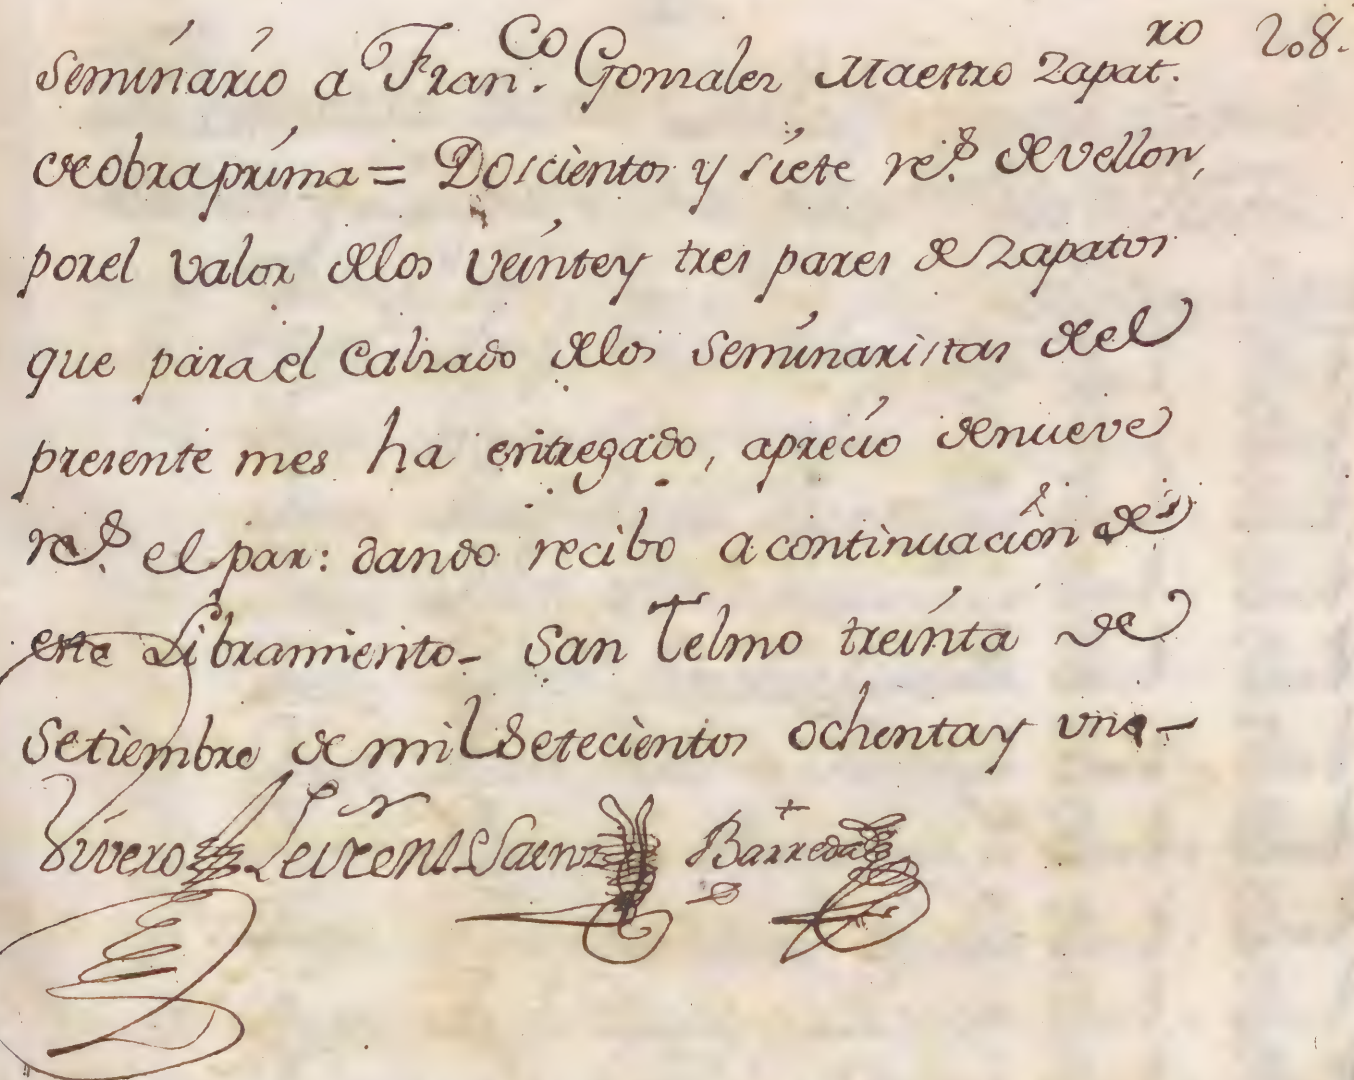 208.
Seminario a Fran.co Gonzalez Maestro Zapat.ro
de obra prima = Doscientos y siete r.s de vellon,
por el valor de los veinte y tres pares de Zapatos
que para el Calzado de los Seminaristas del
presente mes ha entregado, a precio de nueve
r.s el par: dando recibo a continuación de
este Libramiento - San Telmo treinta de
Setiembre de mil Setecientos ochenta y uno -
Vivero Saenz Barreda